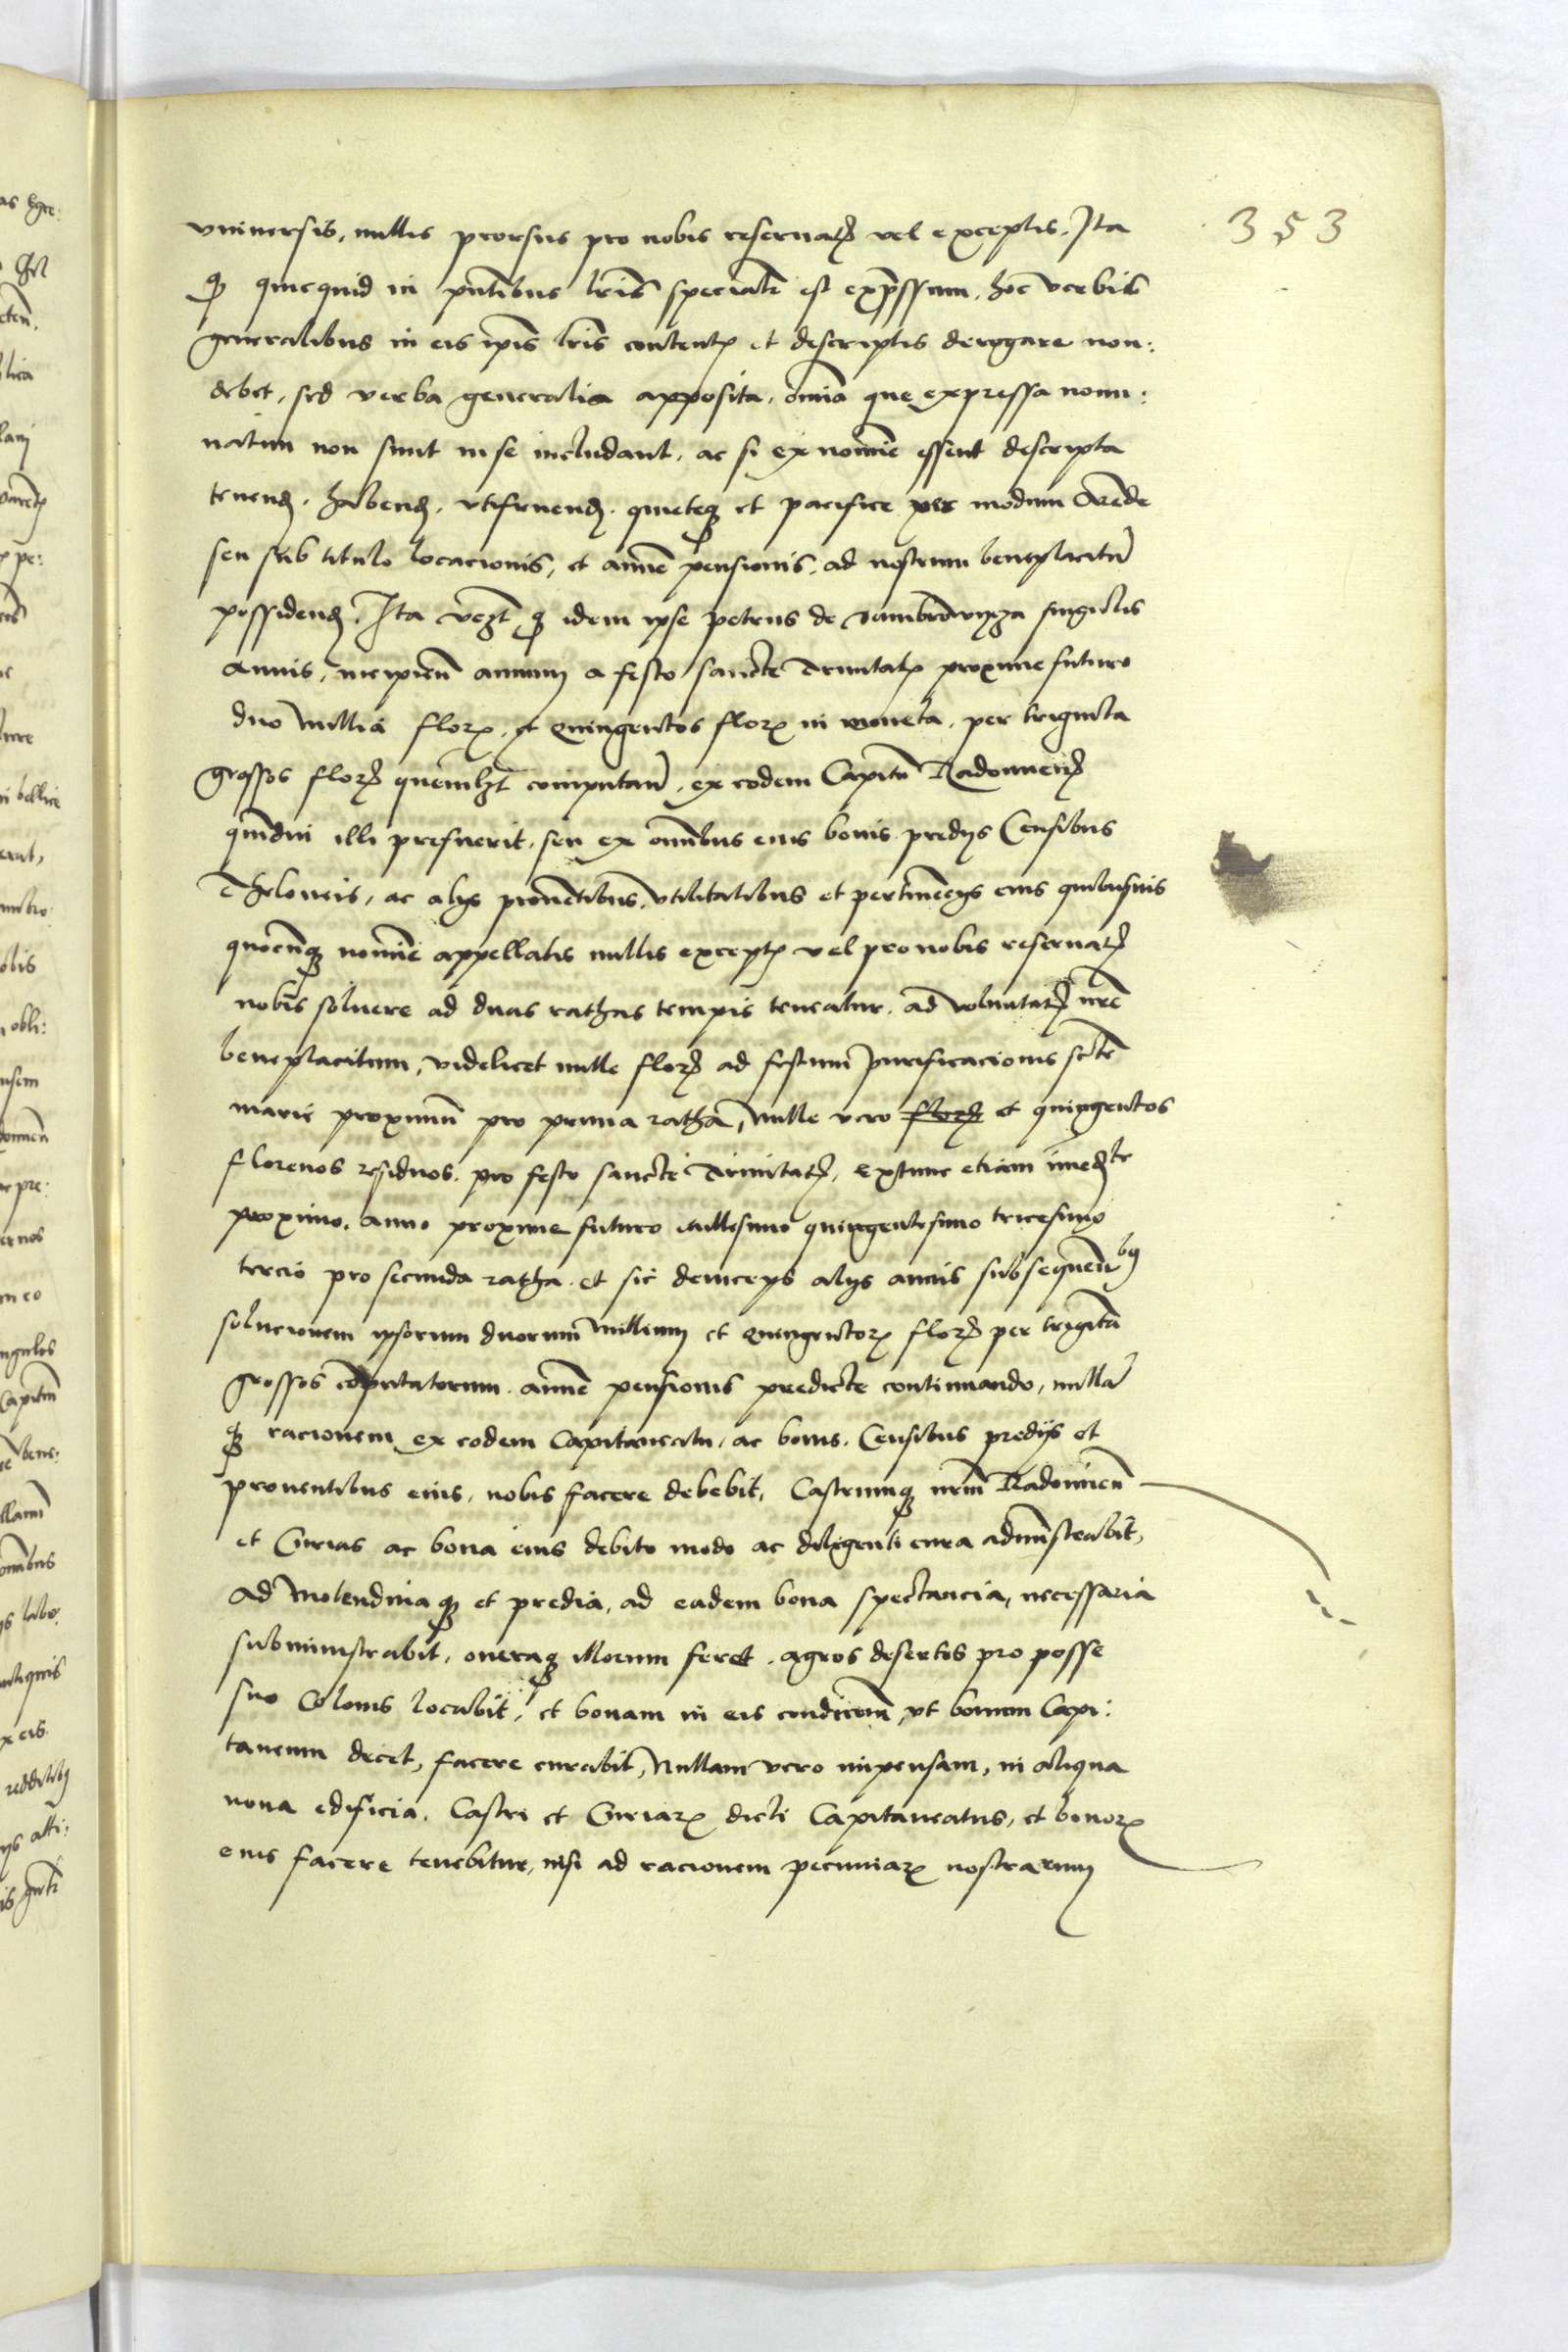 353
vniuersis, nullis prorsus pro nobis reseruatꝭ vel exceptis. Ita
ꝙ quicquid in pn̄tibus lr̄is specialr̄ est exp̄ssum, hoc verbis
generalibus in eis ip̄is lr̄is contentꝭ et descriptis derogare non:
debet, sed verba generalia apposita, om̄ia que expressa nomi:
natim non sunt in se includant, ac si ex nom̄ie essent descripta
tenenꝭ, habenꝭ, vtifruenꝭ, quieteqꝫ et pacifice per modum Arēde
seu sub titulo locacionis, et annue pensionis, ad nostrum beneplacitū
possidenꝭ. Ita vꝫt ꝙ idem ipse petrus de singulis
annis, incipien̄ annum a festo sancte Trinitatꝭ proxime futuro
duo Millia florꝭ et Quingentos florꝭ in moneta, per triginta
grossos florꝭ quēmlꝫt computan̄, ex eodem Capitū Radomienꝭ
quādiu illi prefuerit, seu ex om̄ibus eius bonis predijs Censibus
Theloneis, ac alijs prouētibus, vtilitatibus et pertinēcijs eius quibusuis
quocūqꝫ noīe appellatis nullis exceptꝭ vel pro nobis reseruatꝭ
nobis soluere ad duas rathas temp̄is teneatur, ad voluntatꝭ nr̄e
beneplacitum, videlicet mille florꝭ ad festum Purificacionis sctē
marie proximū pro prima ratha, Mille vero florꝭ et quingentos
florenos residuos, pro festo sancte Trinitatꝭ, extunc etiam imedte
proximo, anno proxime futuro Millesimo quingentesimo tricesimo
tercio pro secunda ratha, et sic deinceps alijs annis subsequen̄bꝫ
solucionem ipsorum duorum Millium et Quingentorꝭ florꝭ per trigīta
grossos cōputatorum, annue pensionis predicte continuando, nullā
qꝫ racionem ex eodem Capitaneatu, ac bonis, Censibus predijs et
prouentibus eius, nobis facere debebit, Castrumqꝫ nr̄m Radomien̄
et Curias ac bona eius debito modo ac diligenti cura adm̄istrabit,
Ad Molendina qꝫ et predia, ad eadem bona spectancia, necessaria
subministrabit, oneraqꝫ illorum feret, agros desertos pro posse
suo Colonis locabit, et bonam in eis condicōem, vt bonum Capi:
taneum decet, facere curabit, Nullam vero impensam, in aliqua
noua edificia, Castri et Curiarꝭ dicti Capitaneatus, et bonorꝭ
eius facere tenebitur, nisi ad racionem pecuniarꝭ nostrarum